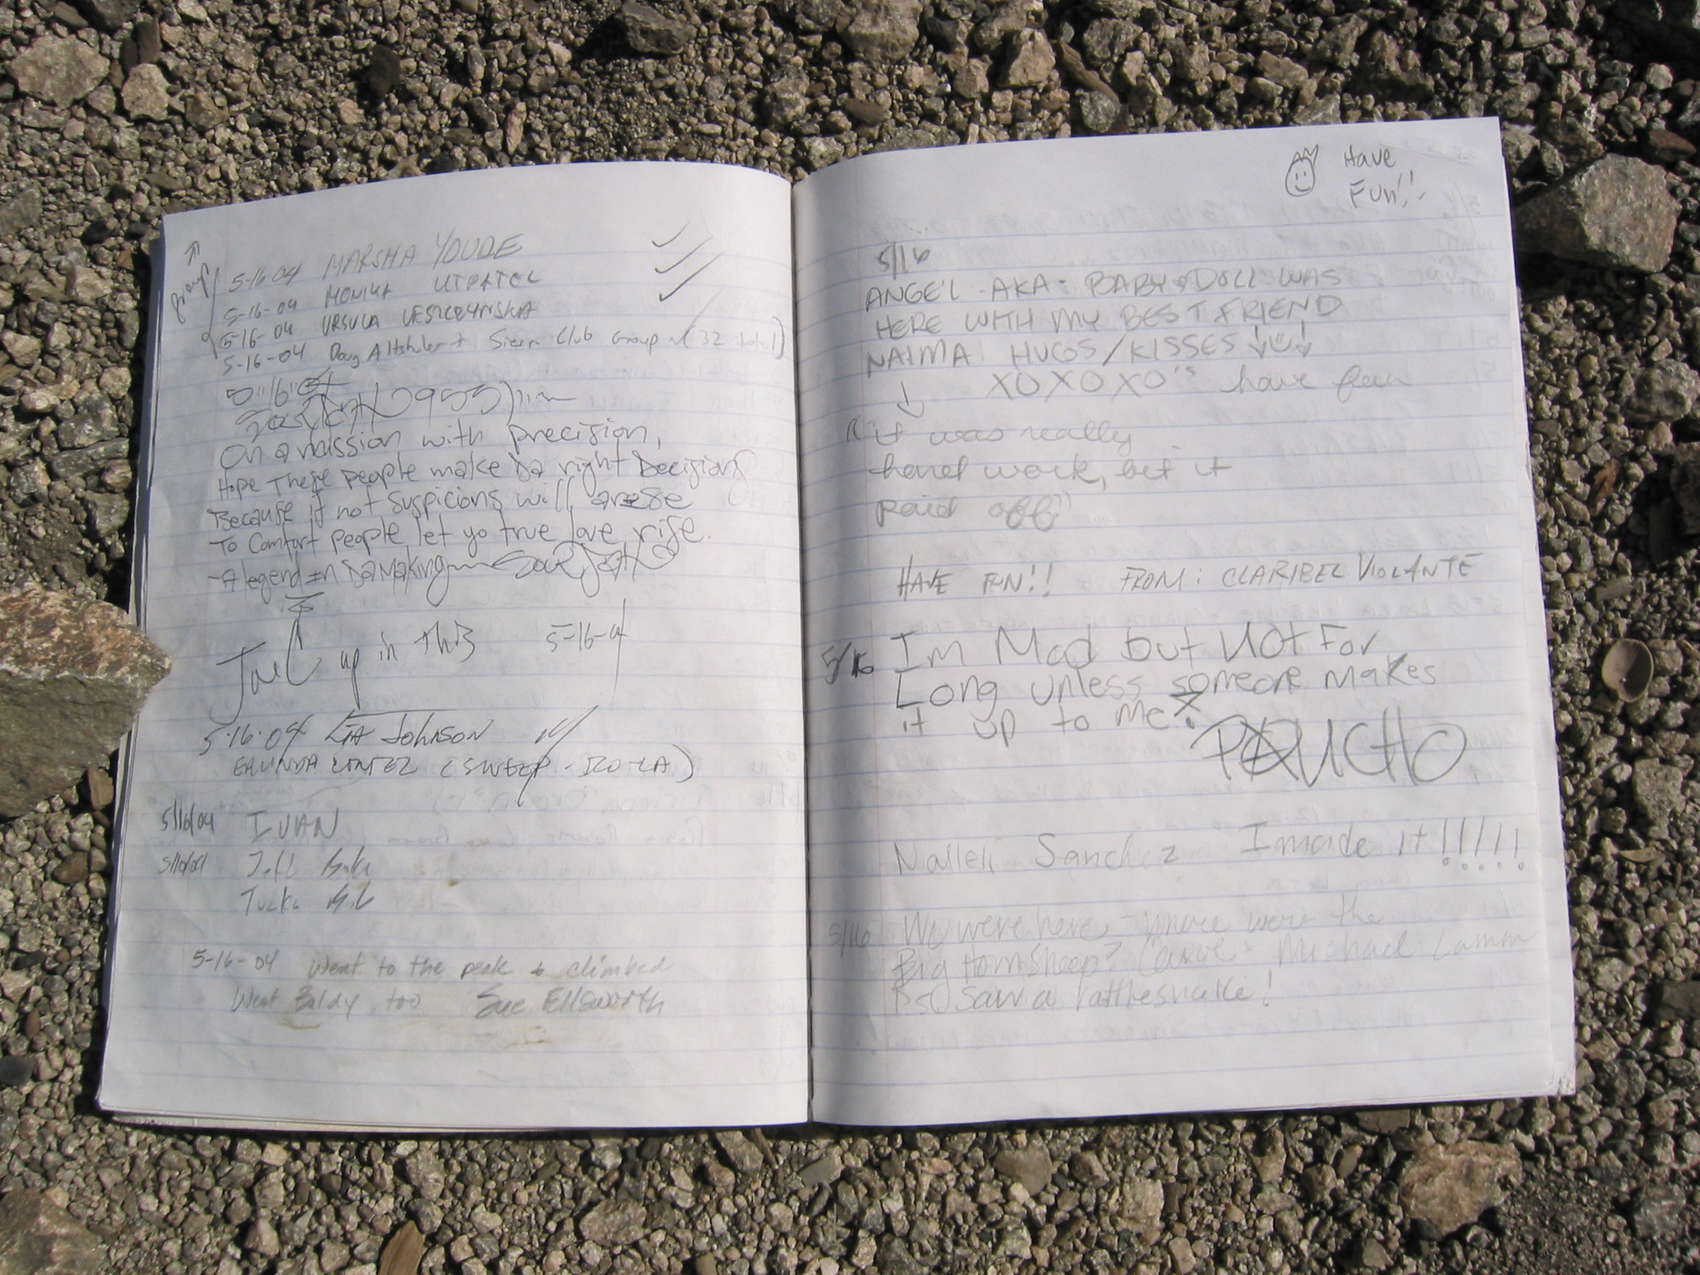 group
5-16-04 MARSHA YOUDE
5-16-04 MONIKA
5-16-04 URSULA
5-16-04 Doug Sierra Club Group (32 total)
5-16-04
On a mission with precision,
Hope These people make Da right Decisions
Because if not Suspicions will arese
To Comfort people let yo true love rise.
-A legend in Da Making
Joel up in this 5-16-04
5-16-04 JOHNSON
5/16/04 IVAN
5/16/04
5-16-04 Went to the peak & climbed
West Baldy too Sue Ellsworth
Have
Fun!!
5/16
ANGEL AKA: BABY DOLL WAS
HERE WITH MY BEST FRIEND
NAIMA! HUGS/KISSES
XOXOXO's have fun
"it was really
hard work, but it
paid off"
HAVE FUN!! FROM: CLARIBEL VIOLANTE
5/16 Im Mad but Not For
Long unless someone makes
it up to me!
PANCHO
Nalleli Sanchez I made it!!!!!
5/16 We were here, where were the
Big horn sheep? Michael Lamm
P.S. Saw a rattlesnake!